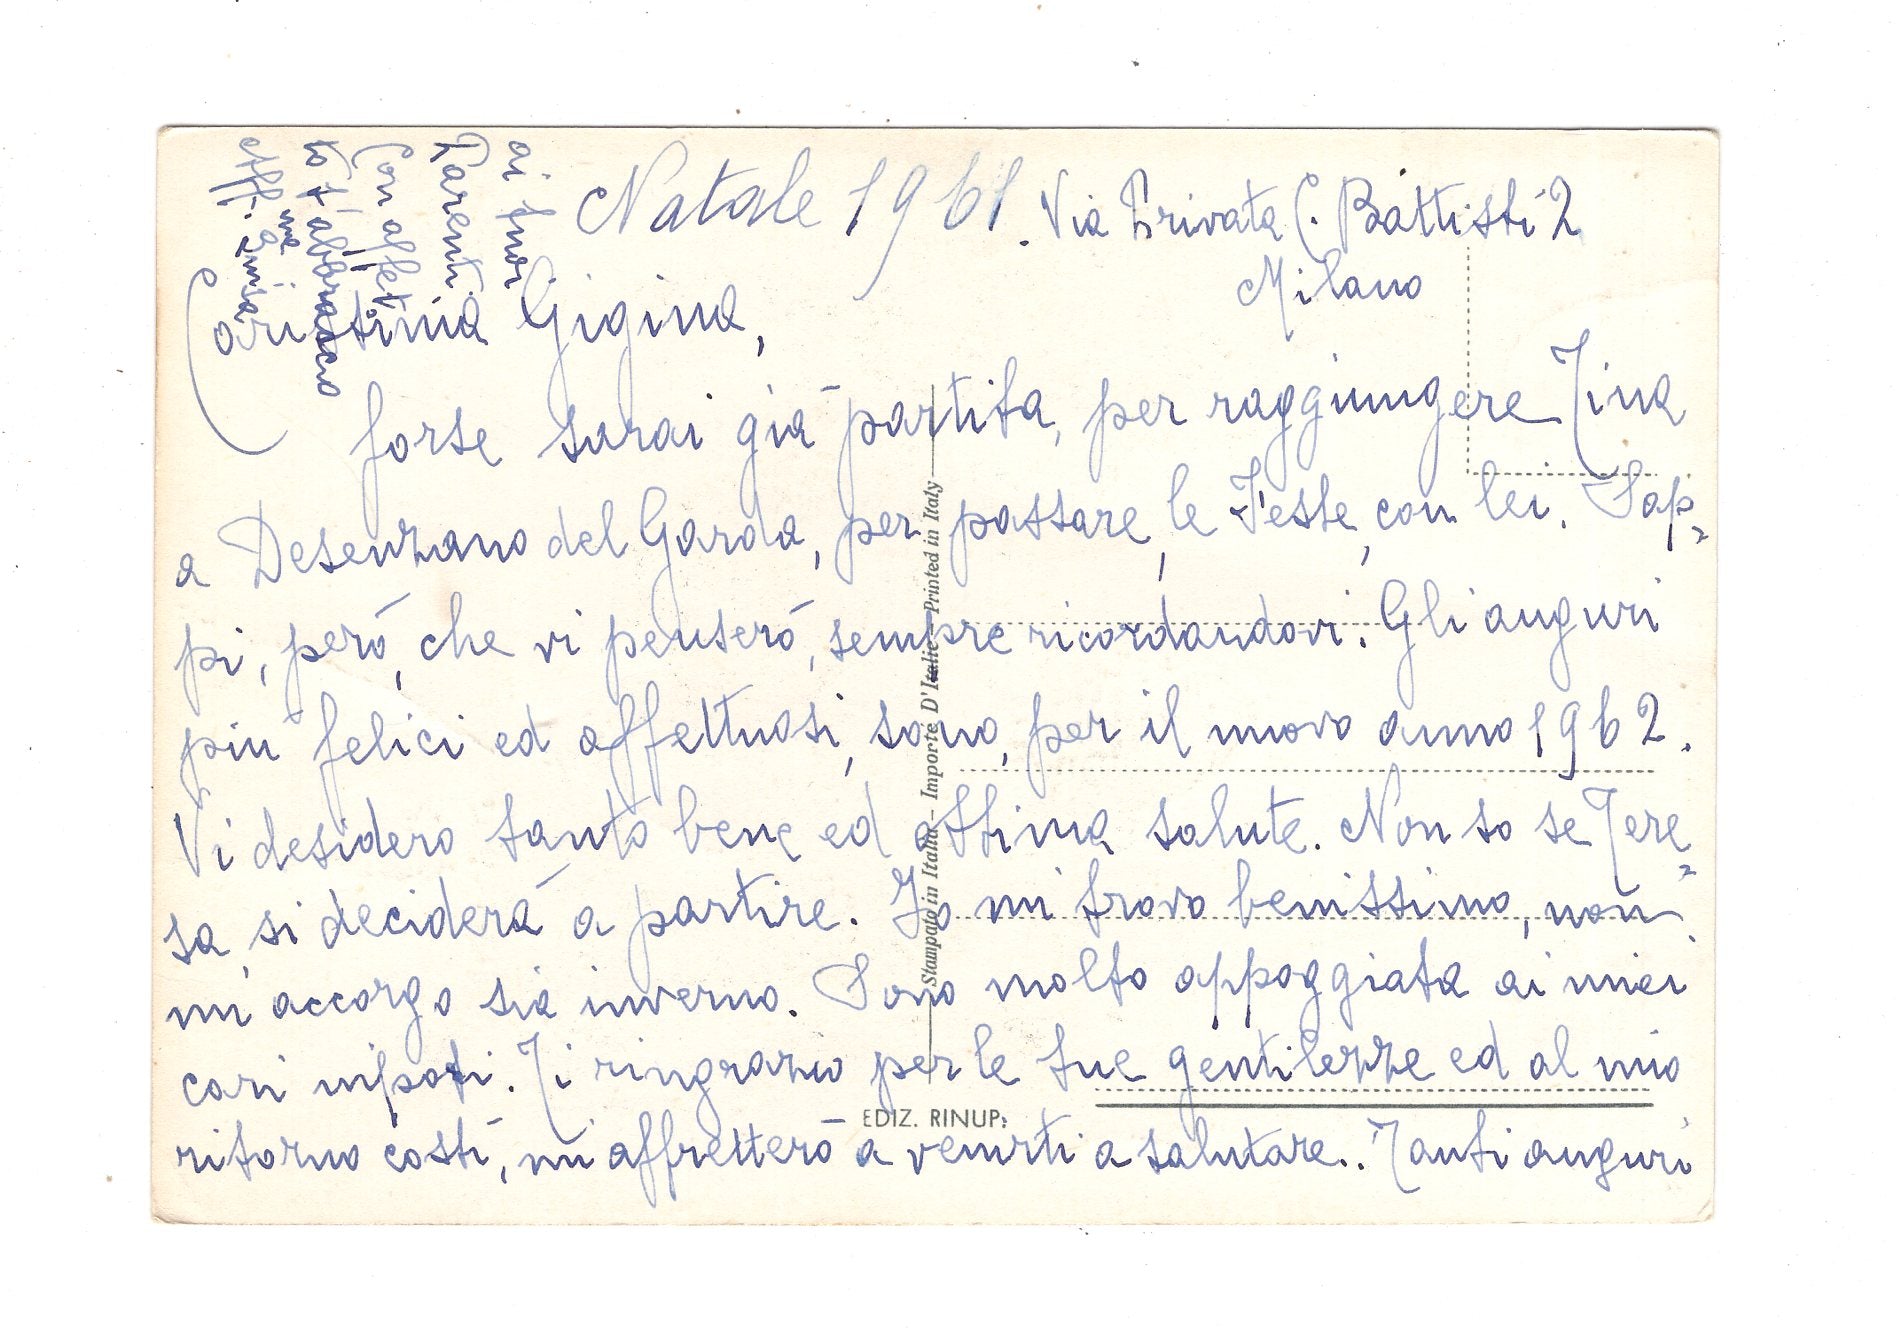 Natale 1961. Via Privata C. Battisti 2
Milano
Carissima Gigina,
forse sarai già partita, per raggiungere Tina
a Desenzano del Garda, per passare, le Feste, con lei. Sap=
pi, però, che vi penserò, sempre ricordandovi. Gli auguri
più felici ed affettuosi, sono, per il nuovo anno 1962.
Vi desidero tanto bene ed ottima salute. Non so se Tere=
sa, si deciderà a partire. Io mi trovo benissimo, non
mi accorgo sia inverno. Sono molto appoggiata ai miei
cari nipoti. Ti ringrazio per le tue gentilezze ed al mio
ritorno costì, mi affretterò a venirti a salutare.. Tanti auguri
ai tuoi
Parenti
Con affet
to t'abbraccio
aff.ma Luisa
Stampato in Italia – Importé D'Italie – Printed in Italy
EDIZ. RINUP: